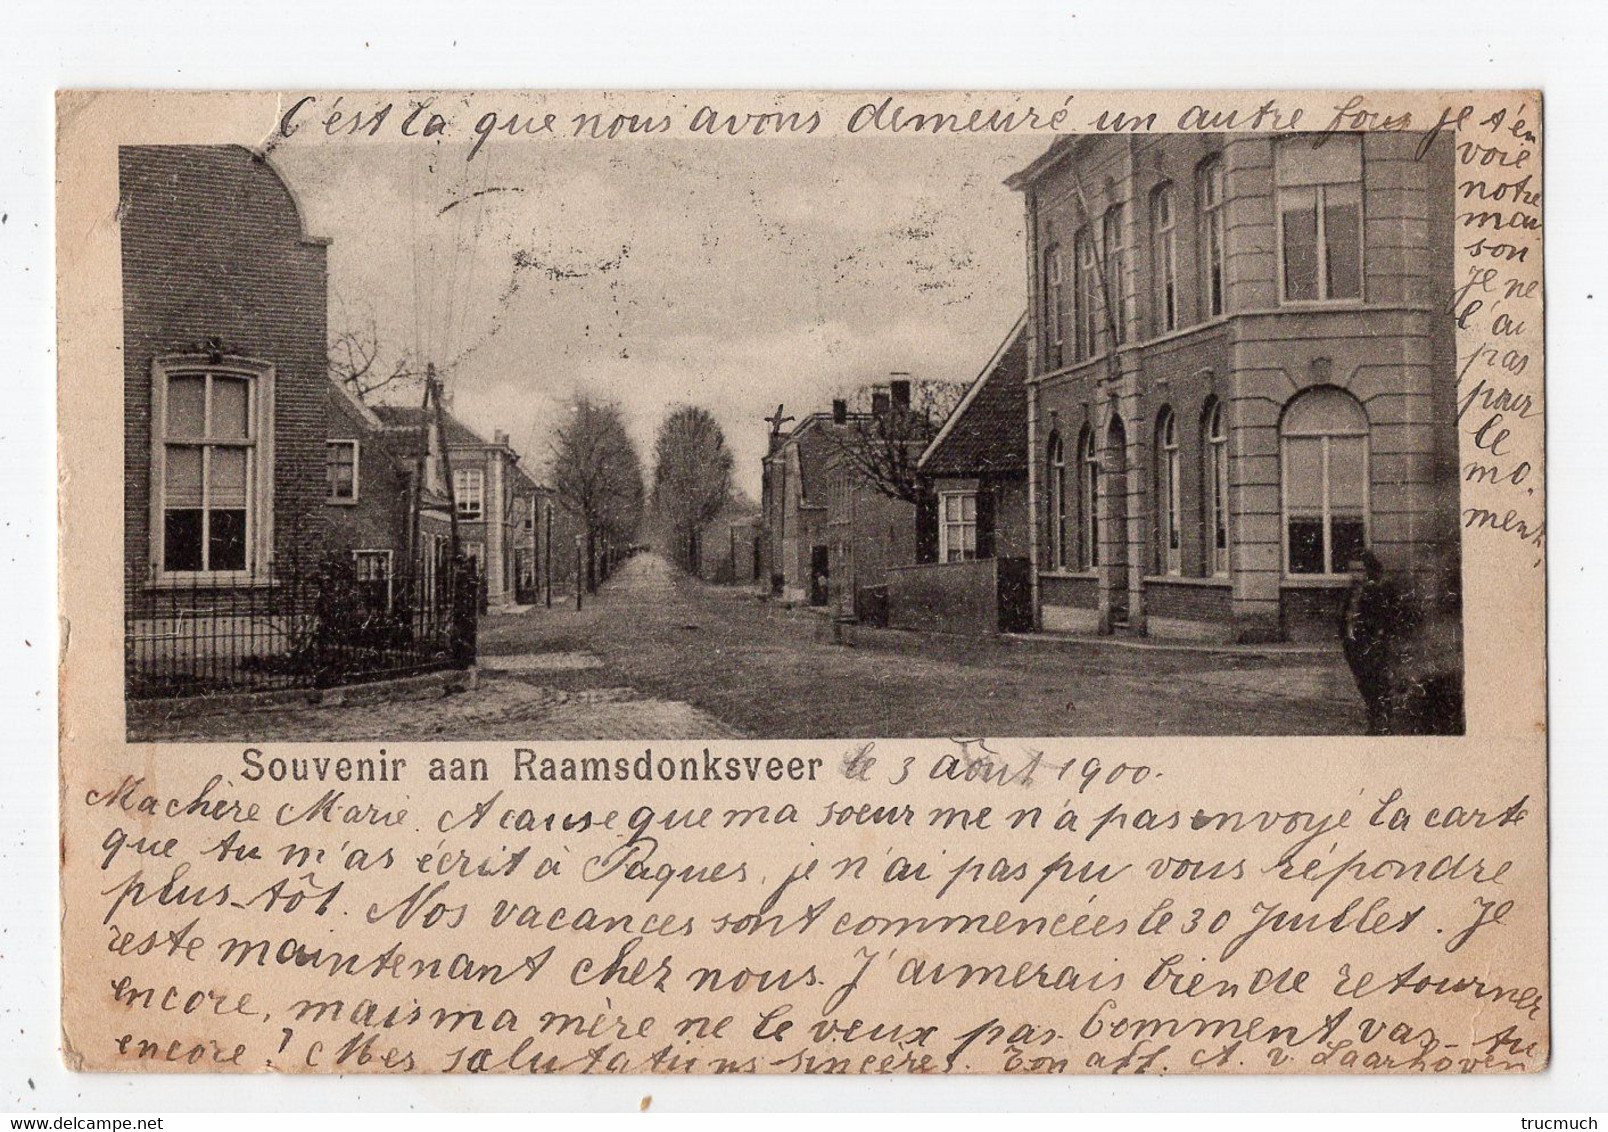 C'est la que nous avons demeuré un autre fous je t'en
voie
notre
mai
son
je ne
l'ai
pas
pour
le
mo.
ment.
Souvenir aan Raamsdonksveer le 3 août 1900.
Ma chère Marie. A cause que ma soeur me n'a pas envoyé la carte
que tu m'as écrit à Paques, je n'ai pas pu vous répondre
plus-tôt. Nos vacances sont commencées le 30 Juillet. Je
reste maintenant chez nous. J'aimerais bien de retourner
encore, mais ma mère ne le veux pas. Comment vas-tu
encore? Mes salutations sincères. Ton aff. A. v. Laarhoven
delcampe.net
trucmuch